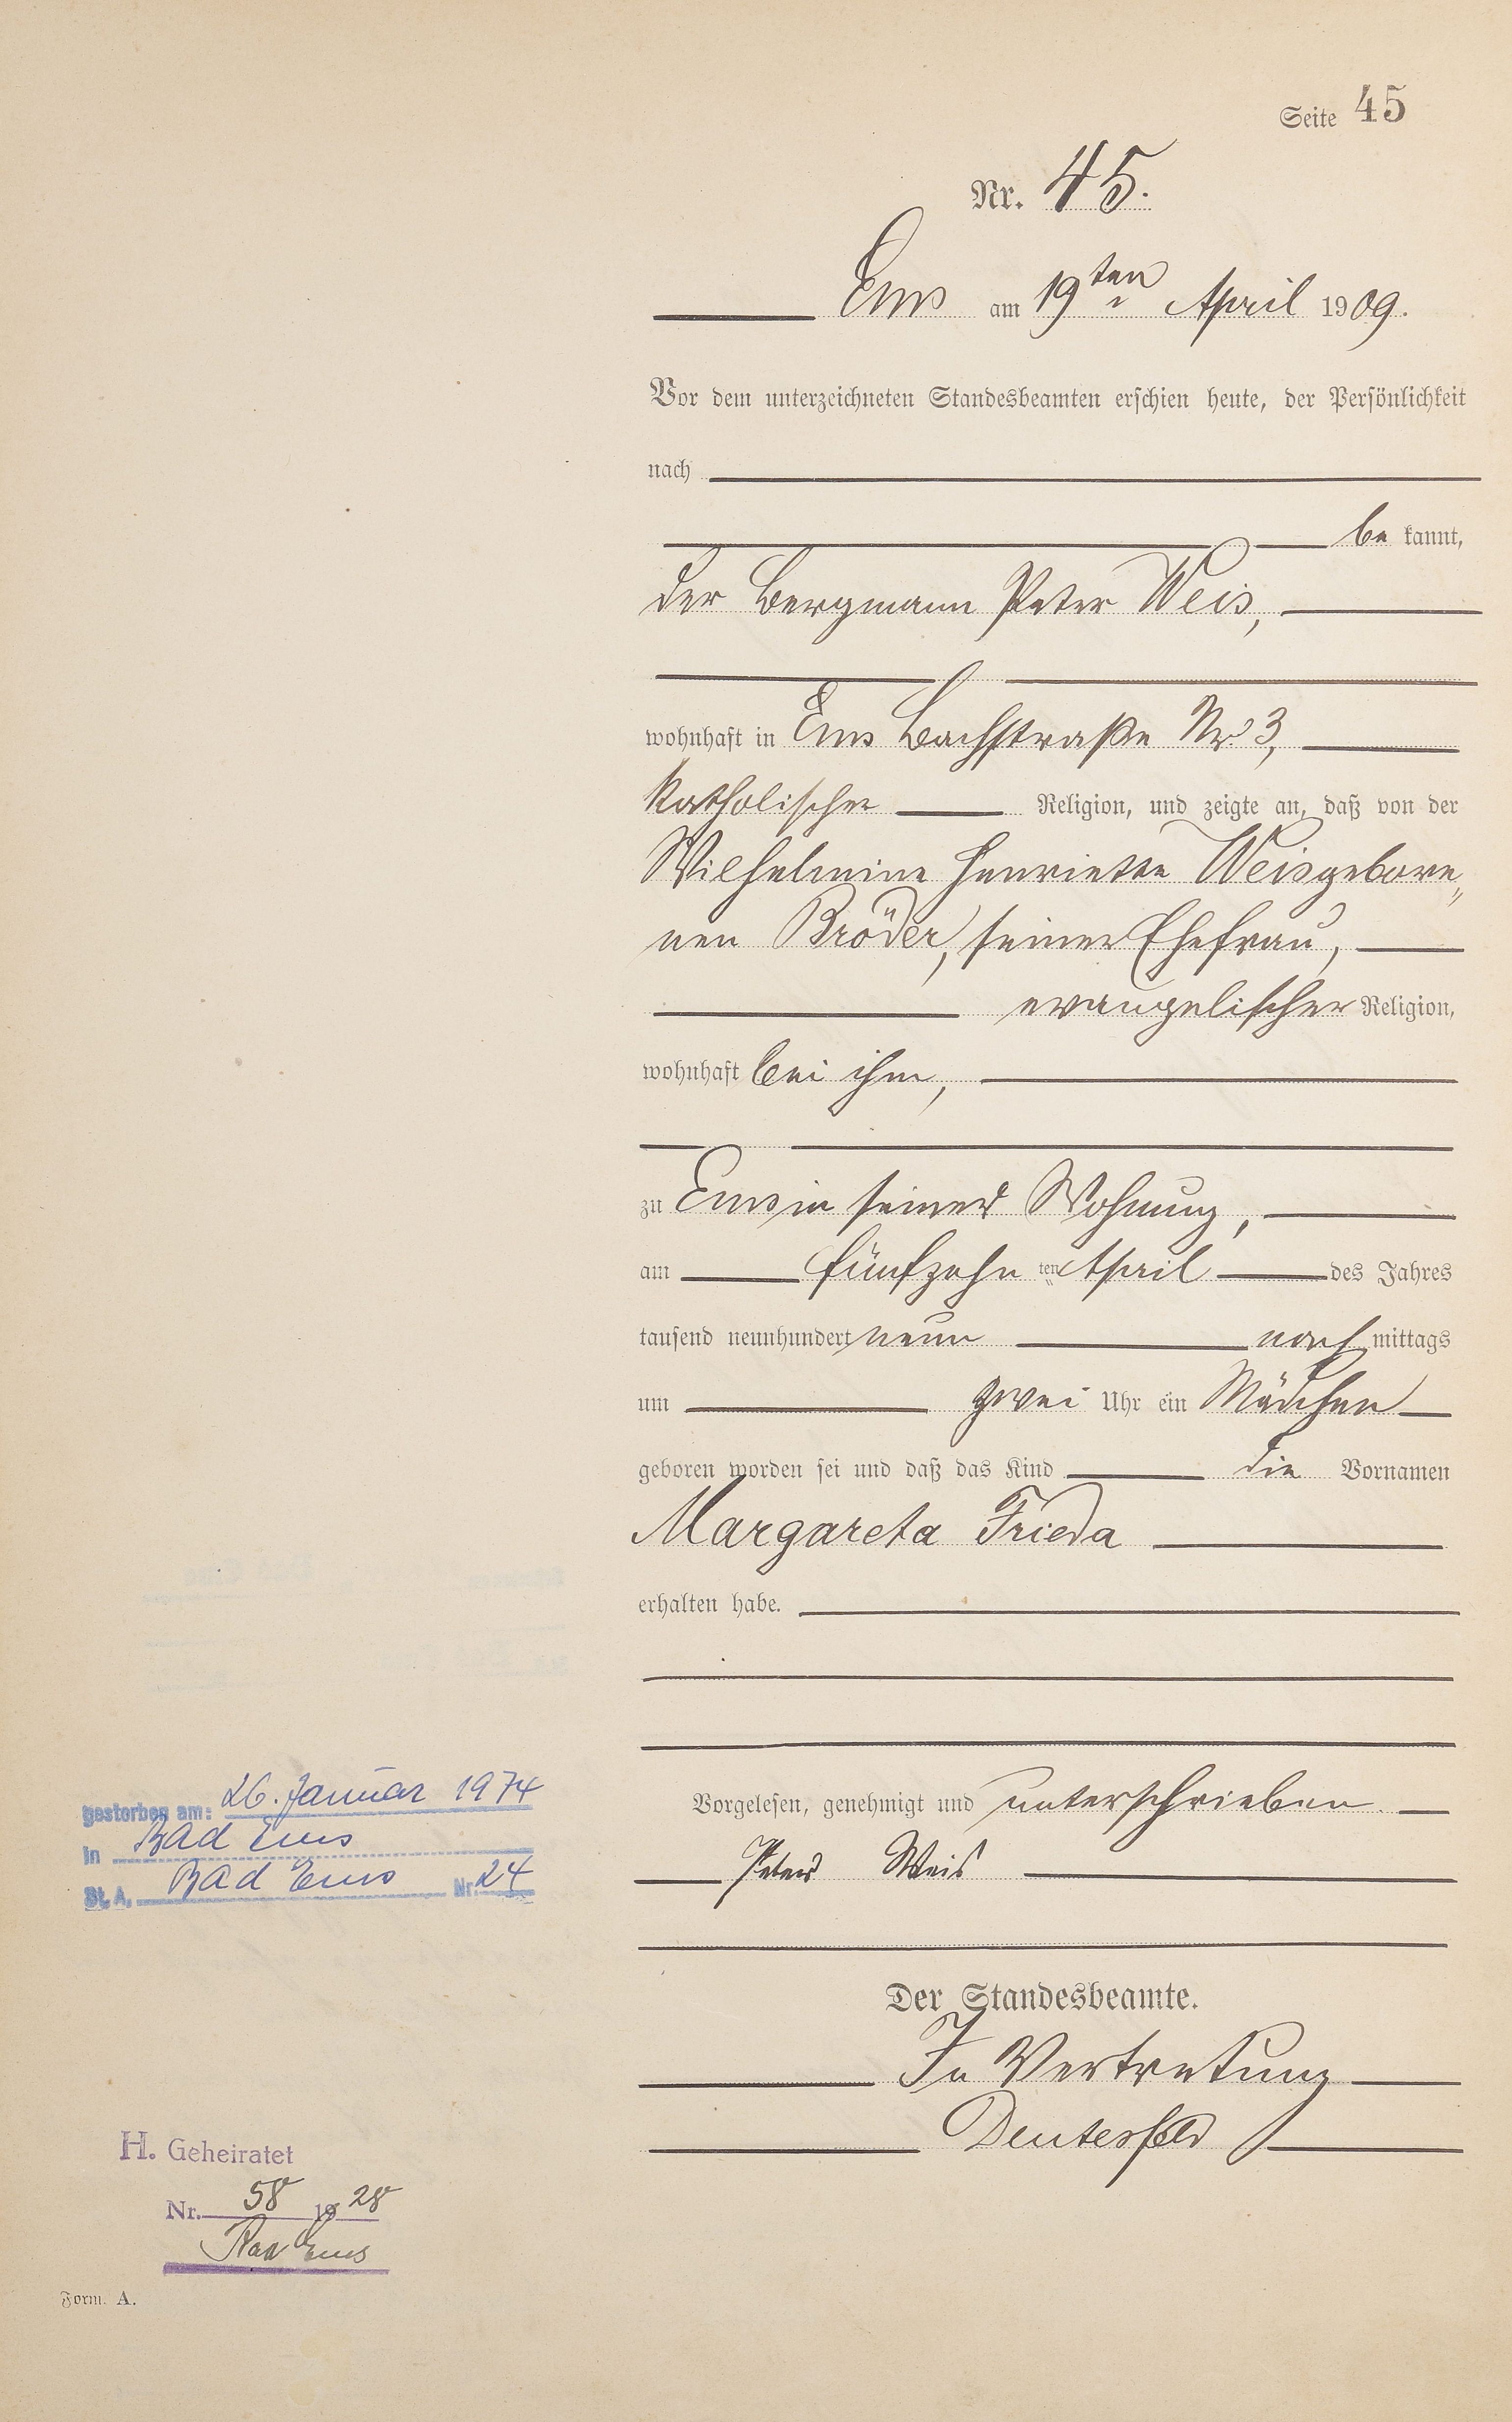 Seite 45
Nr. 45.
Ems am 19ten April 1909.
Vor dem unterzeichneten Standesbeamten erschien heute, der Persönlichkeit
nach
be kannt,
der Bergmann Peter Weis,
wohnhaft in Ems Bachstraße Nr. 3,
katholischer Religion, und zeigte an, daß von der
Wilhelmine Henriette Weis gebore„
nen Bröder, seiner Ehefrau,
evangelischer Religion,
wohnhaft bei ihm,
zu Ems in seiner Wohnung,
am fünfzehn ten April des Jahres
tausend neunhundert neun nach mittags
um zwei Uhr ein Mädchen
geboren worden sei und daß das Kind die Vornamen
Margareta Frieda
erhalten habe.
Vorgelesen, genehmigt und unterschrieben.
Peter Weis
Der Standesbeamte.
In Vertretung
Deutesfeld
gestorben am: 26. Januar 1974
in Bad Ems
St. A. Bad Ems Nr. 24
H. Geheiratet
Nr. 58 1928
Bad Ems
Form. A.